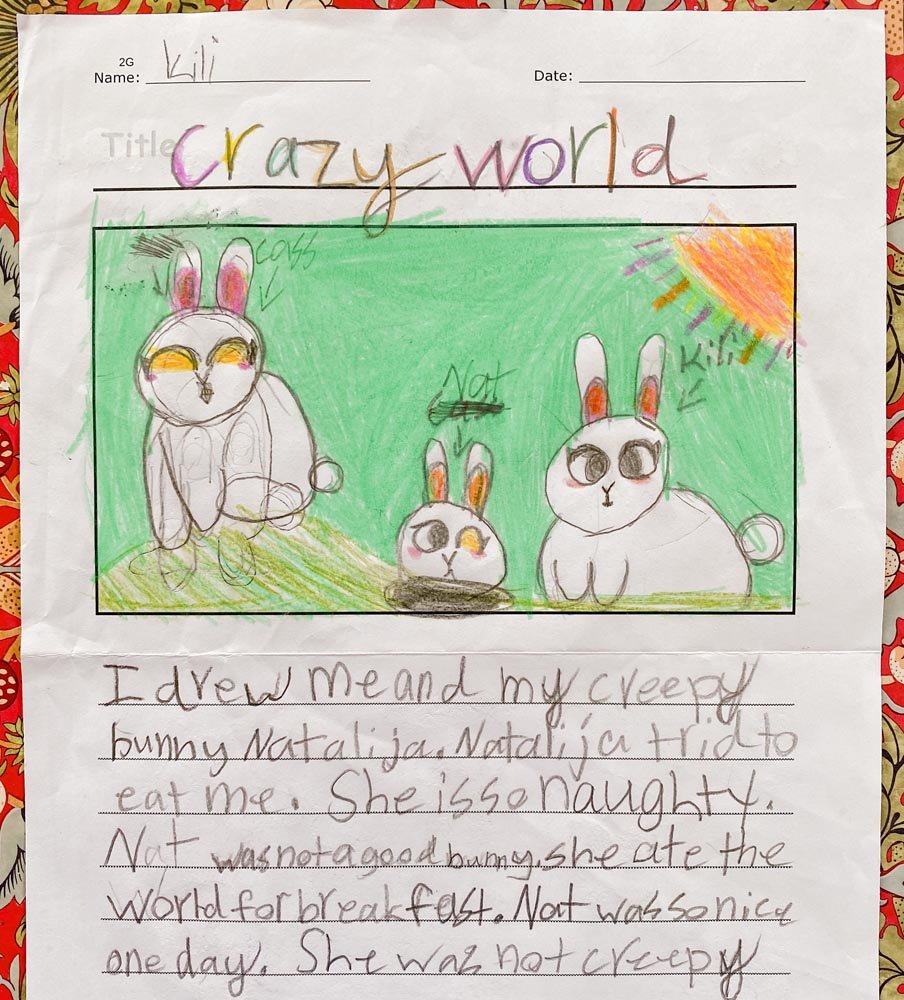 2G
Name: Kili
Date:
Title Crazy world
cass
Nat
Kili
I drew me and my creepy
bunny Natalija. Natalija trid to
eat me. She is so naughty.
Nat was not a good bunny. she ate the
world for breakfast. Nat was so nice
one day. She was not creepy